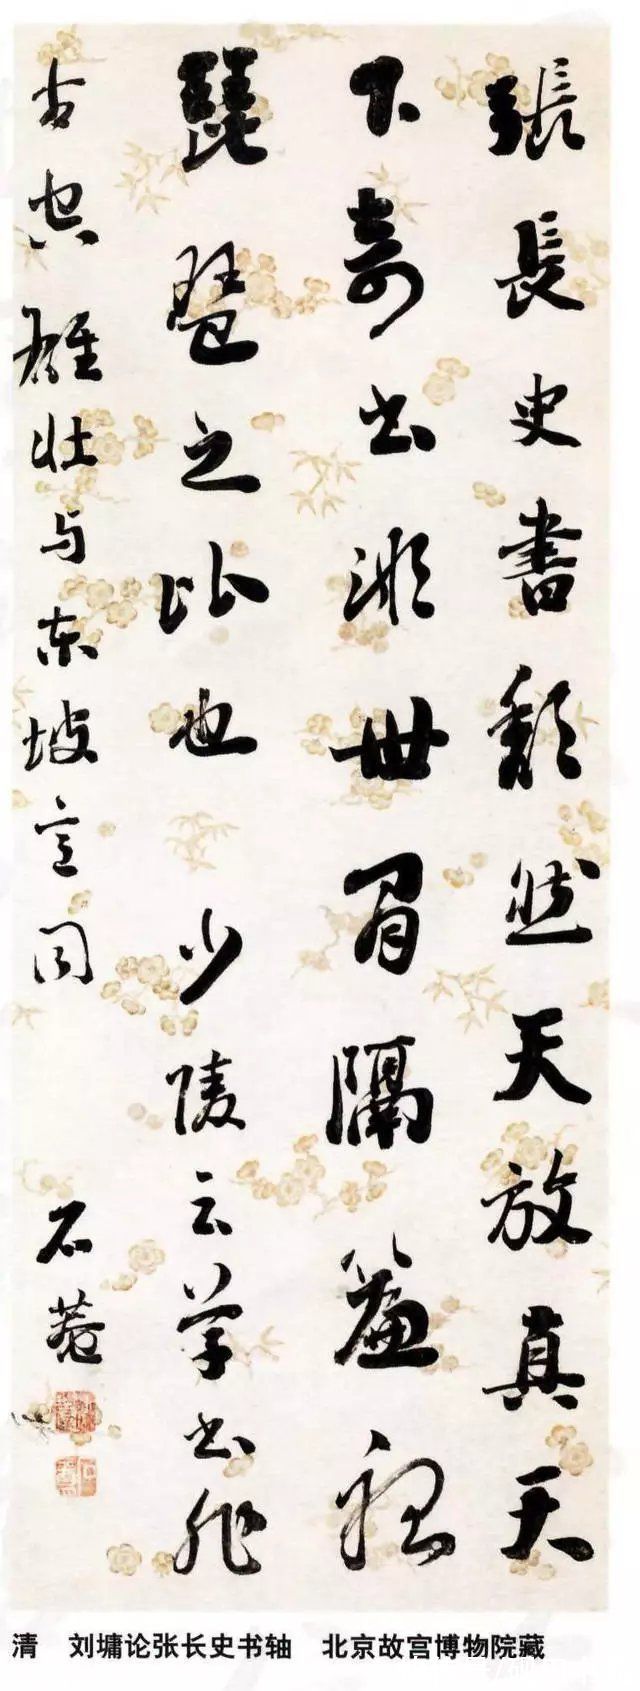 張長史書頹然天放真天
下奇書世間隔簾聽
琵琶之比也少陵云草書非
古空雄壯与東坡意同
石菴
清 刘墉论张长史书轴 北京故宫博物院藏